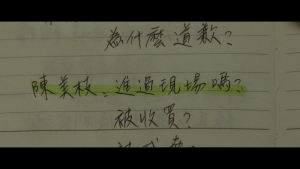 為什麼道歉?
陳美枝:進過現場嗎?
被收買?